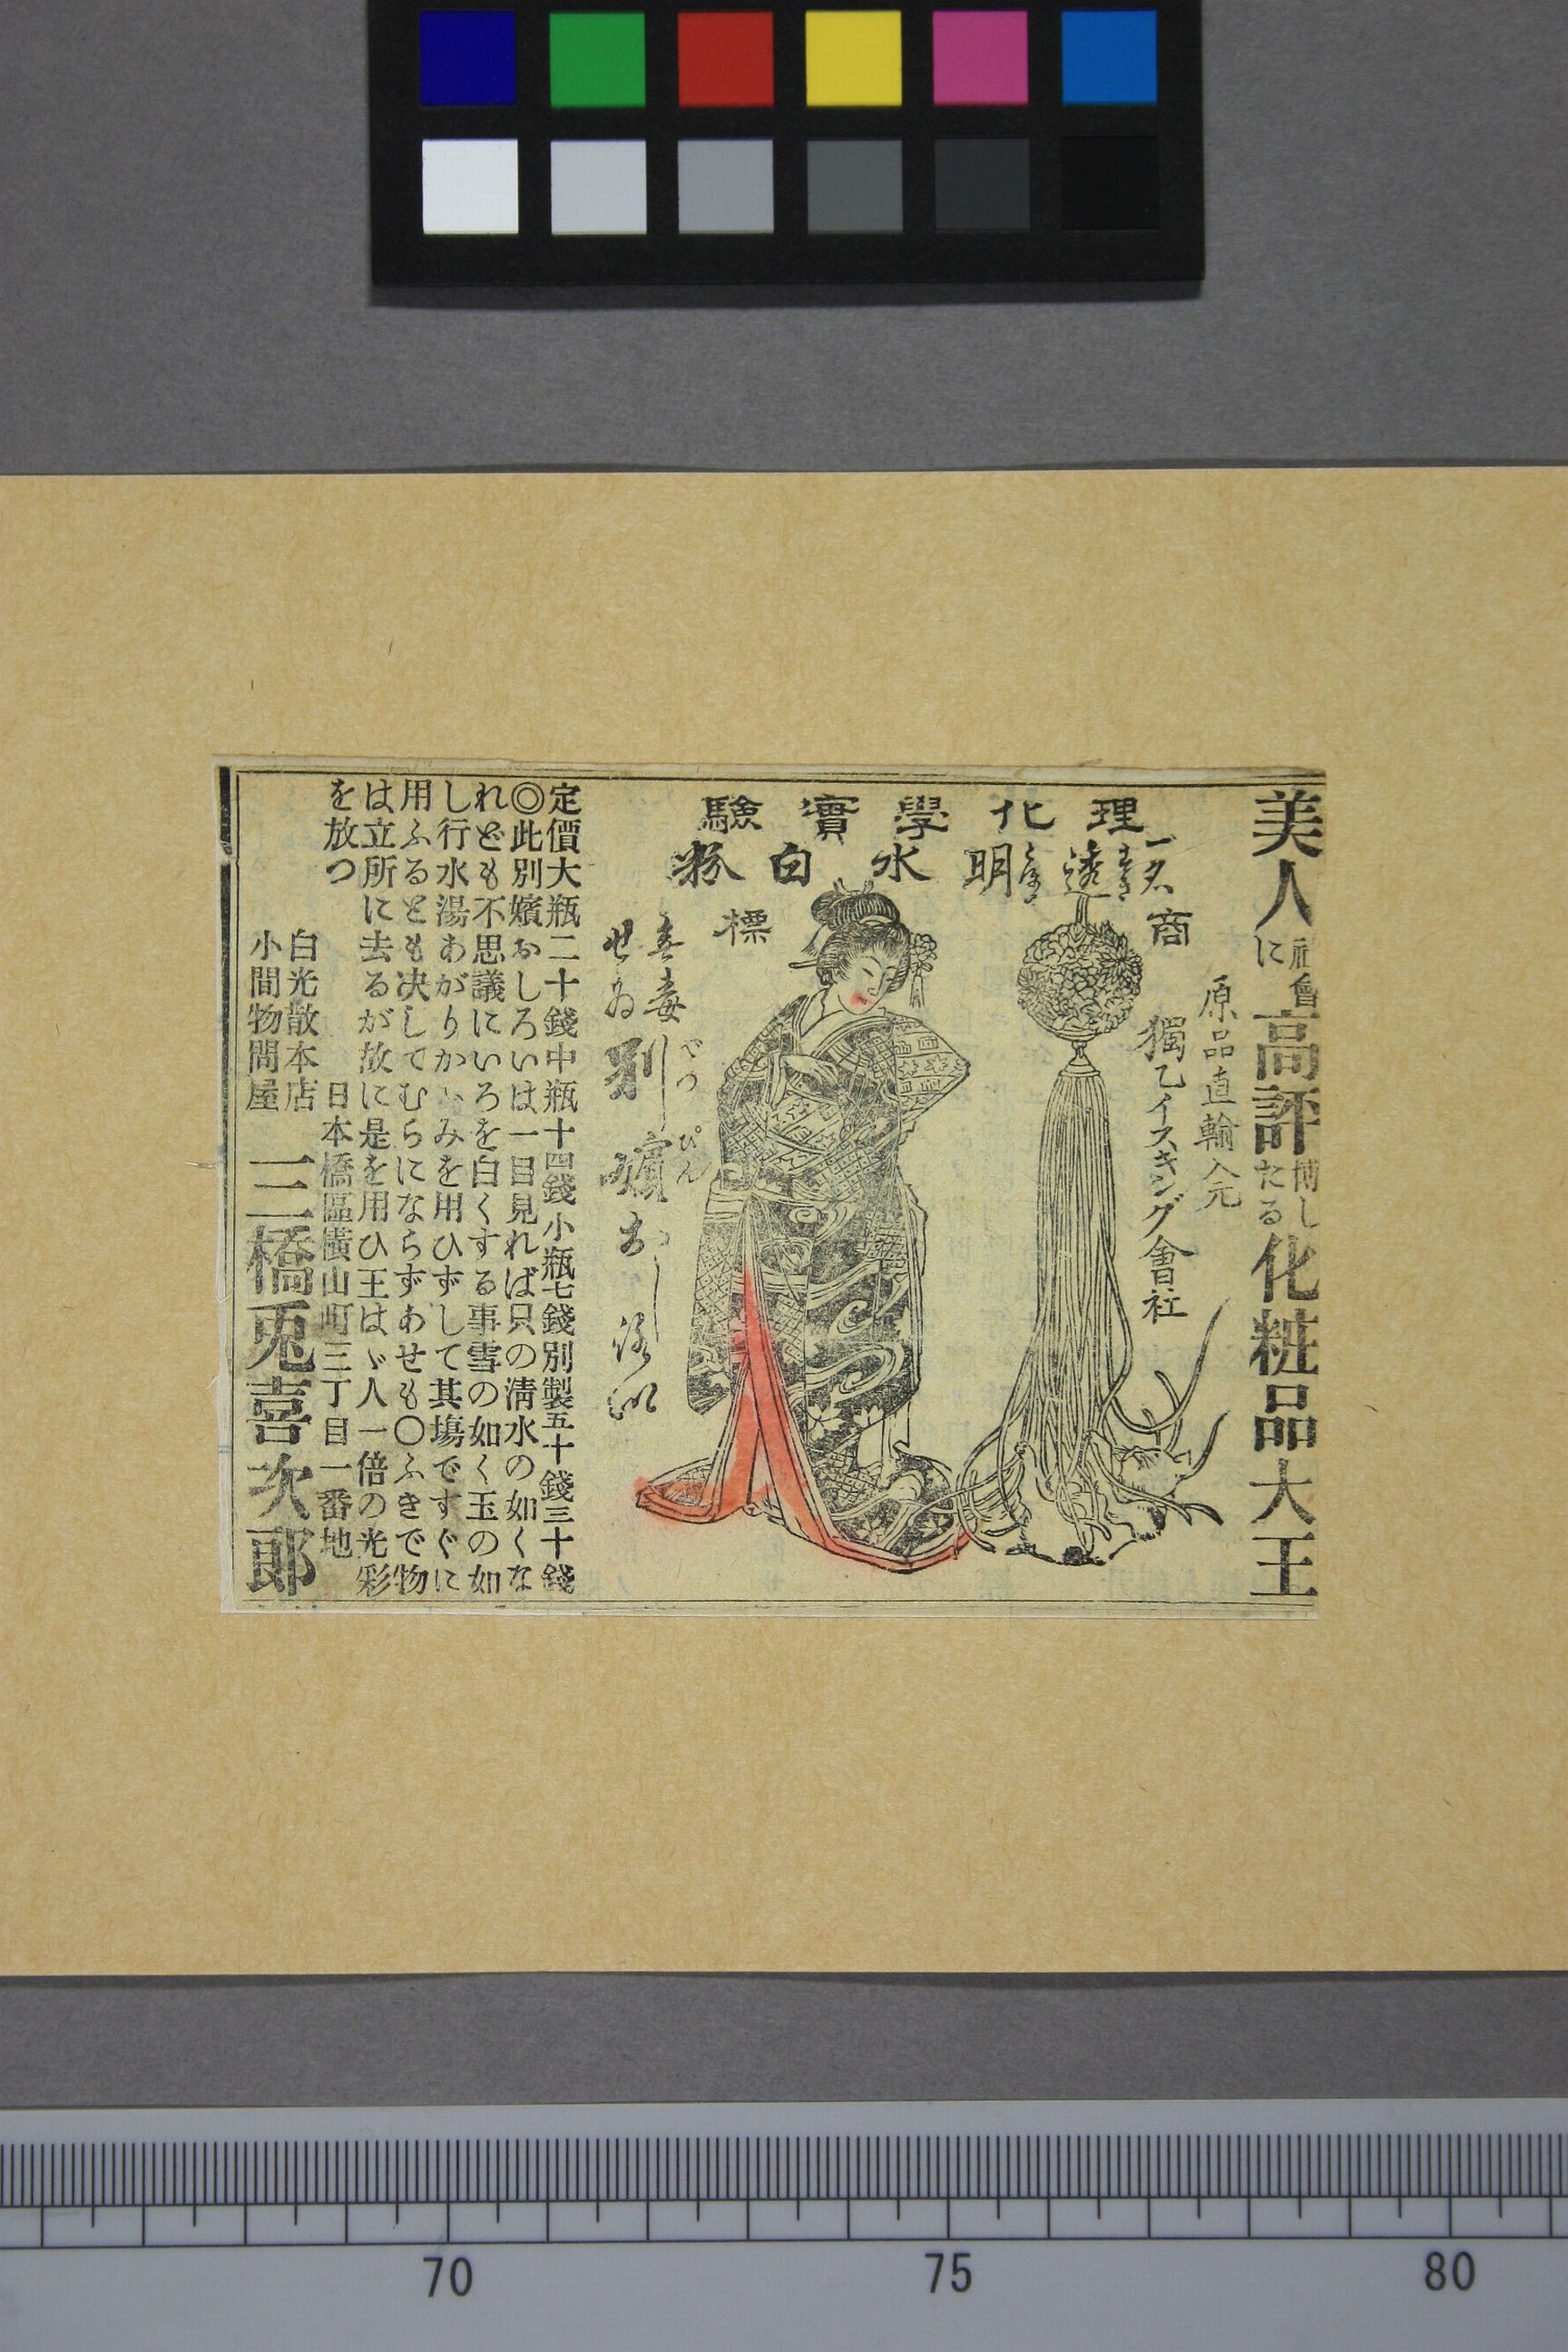 美人社會に高評博したる化粧品大王
原品直輸入元
獨乙イスキング會社
理化學實驗
一名
透明水白粉
商標
無毒
せゐ
別嬪おしろい
べつぴん
定價大瓶二十錢中瓶十四錢小瓶七錢別製五十錢三十錢
◎此別嬪おしろいは一目見れば只の清水の如くな
れども不思議にいろを白くする事雪の如く玉の如
し行水湯あがりかゞみを用ひずして其塲ですぐに
用ふるとも决してむらにならずあせも〇ふきで物
は立所に去るが故に是を用ひ王はゞ人一倍の光彩
を放つ
日本橋區横山町三丁目一番地
白光散本店
小間物問屋
三橋兎喜次郎
70
75
80